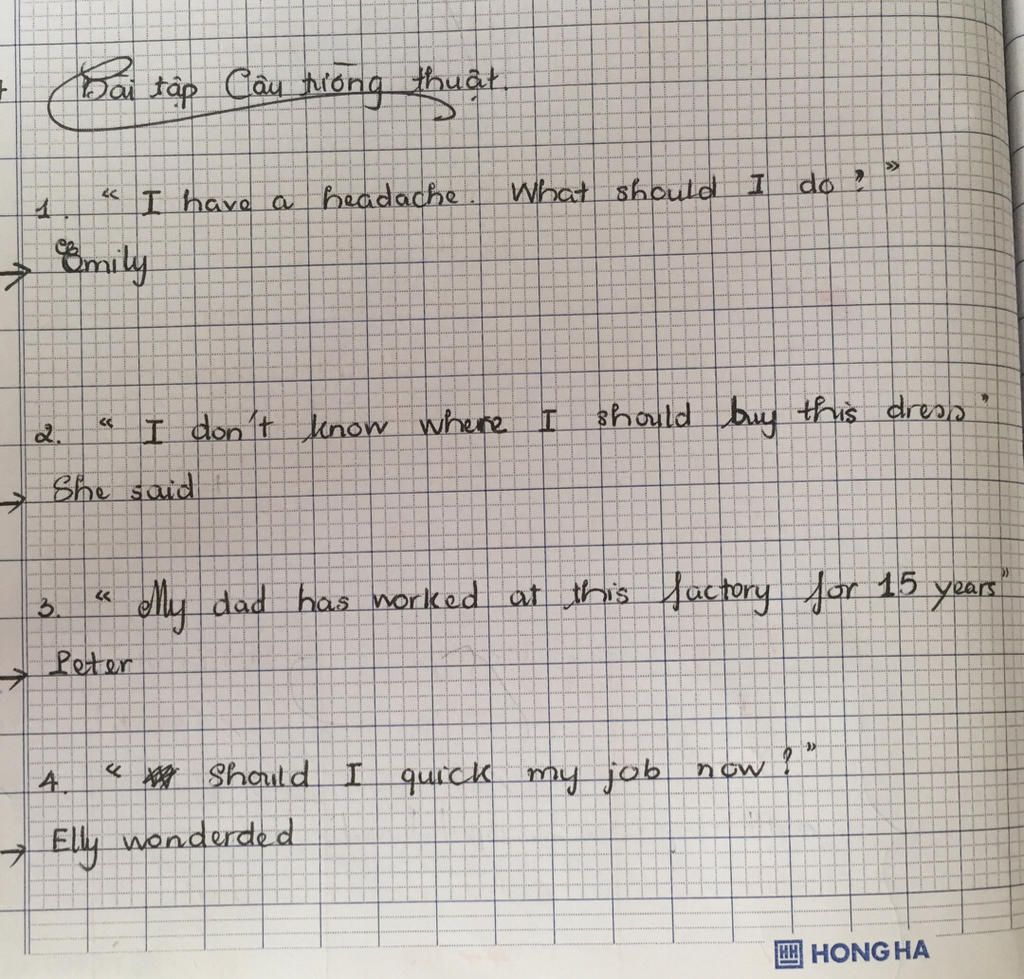 Bài tập Câu tường thuật.
1. “ I have a headache. What should I do ? ”
→ Emily
2. “ I don't know where I should buy this dress ”
→ She said
3. “ My dad has worked at this factory for 15 years ”
→ Peter
4. “ Should I quick my job now ? ”
→ Elly wonderded
HH HONG HA